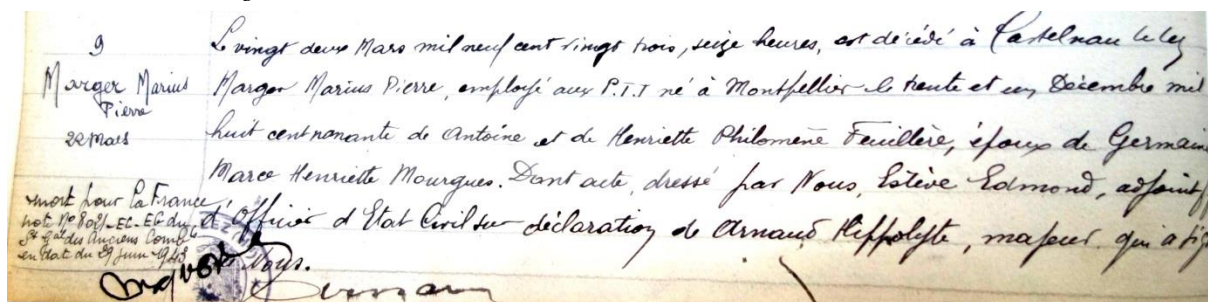 9
Marger Marius
Pierre
22 Mars
mort pour la France
note No 802-EC-EG du
St Gal des Anciens Combts
en dat du 29 Juin 1943
Le vingt deux Mars mil neuf cent vingt trois, seize heures, est décédé à Castelnau le lez
Marger Marius Pierre, employé aux P.T.T né à Montpellier le trente et un Décembre mil
huit cent nonante de Antoine et de Henriette Philomène Feuillère, époux de Germaine
Marce Henriette Mourgues. Dont acte, dressé par Nous, Estève Edmond, adjoint
d'Officier d'Etat Civil sur déclaration de Arnaud Hippolyte, majeur qui a sig
Nous.